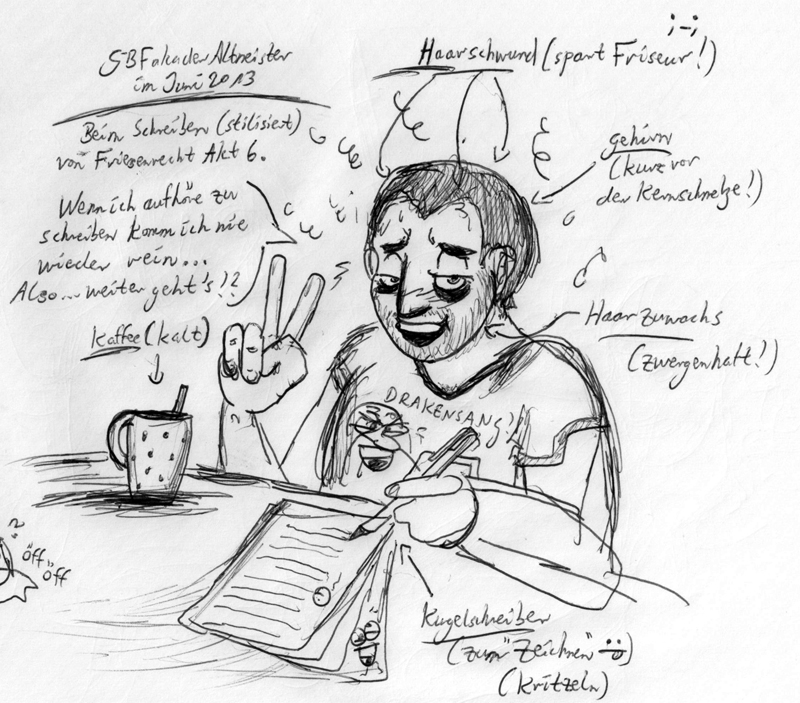 SBFalkader Altmeister
im Juni 2013
Beim Schreiben (stilisiert)
von Friesenrecht Akt 6.
Wenn ich aufhöre zu
schreiben komm ich nie
wieder rein...
Also... weiter geht's!?
Kaffee (kalt)
;-;
Haarschwund (spart Friseur!)
gehirn
(kurz vor
der Kernschmelze!)
Haarzuwachs
(zwergenhaft!)
DRAKENSANG!
?
"öff"
öff
Kugelschreiber
(zum "Zeichnen")
(kritzeln)